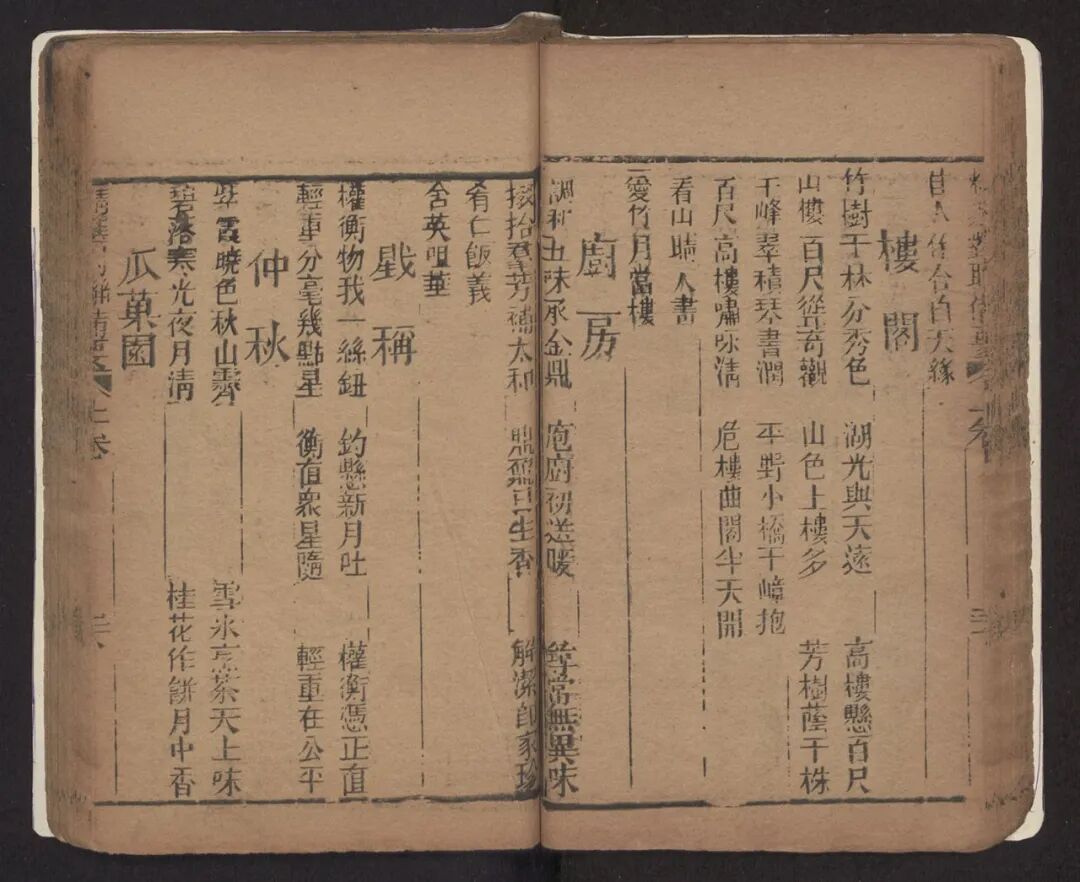 樓閣
竹樹千林分秀色 湖光與天遠 高樓懸百尺
山樓百尺從奇觀 山色上樓多 芳樹蔭千株
千峰翠積琴書潤 平野小橋千嶂抱
百尺高樓嘯咏清 危樓曲閣半天開
看山晴入畫
愛竹月當樓
廚房
調和五味承金鼎 庖廚初送暖 無異味
掇拾羣芳補太和 生香 解潔自家珍
肴仁飯義
含英咀華
戥稱
權衡物我一絲鈕 鈎懸新月吐 權衡憑正直
輕重分毫幾點星 衡值衆星隨 輕重在公平
仲秋
紫霞曉色秋山霽 雪水烹茶天上味
碧落寒光夜月清 桂花作餅月中香
瓜菓園
上卷